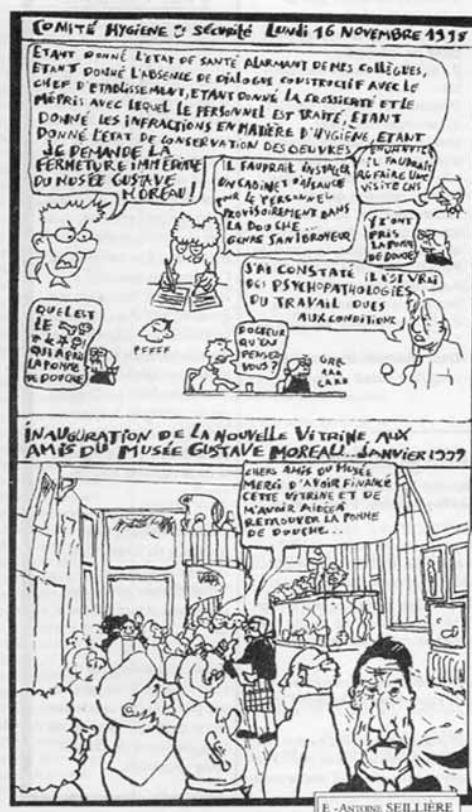 COMITÉ HYGIENE SÉCURITÉ LUNDI 16 NOVEMBRE 1998
ETANT DONNÉ L'ETAT DE SANTÉ ALARMANT DE MES COLLÈGUES,
ETANT DONNÉ L'ABSENCE DE DIALOGUE CONSTRUCTIF AVEC LE
CHEF D'ETABLISSEMENT, ETANT DONNÉ LA GROSSIERTÉ ET LE
MÉPRIS AVEC LEQUEL LE PERSONNEL EST TRAITÉ, ETANT
DONNÉ LES INFRACTIONS EN MATIÈRE D'HYGIÈNE, ETANT
DONNÉ L'ETAT DE CONSERVATION DES OEUVRES
JE DEMANDE LA
FERMETURE IMMÉDIATE
DU MUSÉE GUSTAVE
MOREAU!
IL FAUDRAIT INSTALLER
UN CABINET D'AISANCE
POUR LE PERSONNEL
PROVISOIREMENT DANS
LA DOUCHE...
GENRE SANIBROYEUR
IL FAUDRAIT
REFAIRE UNE
VISITE CHS
Y Z'ONT
PRIS
LA POMME
DE DOUCHE
J'AI CONSTATÉ IL EST VRAI
DES PSYCHOPATHOLOGIES
DU TRAVAIL DUES
AUX CONDITIONS
QUEL EST
LE
QUI A PRIS
LA POMME
DE DOUCHE
PFFFFF
DOCTEUR
QU'EN
PENSEZ
VOUS?
INAUGURATION DE LA NOUVELLE VITRINE AUX
AMIS DU MUSÉE GUSTAVE MOREAU... JANVIER 1999
CHERS AMIS DU MUSÉE
MERCI D'AVOIR FINANCÉ
CETTE VITRINE ET DE
M'AVOIR AIDÉE À
RETROUVER LA POMME
DE DOUCHE...
E.-ANTOINE SEILLIÈRE